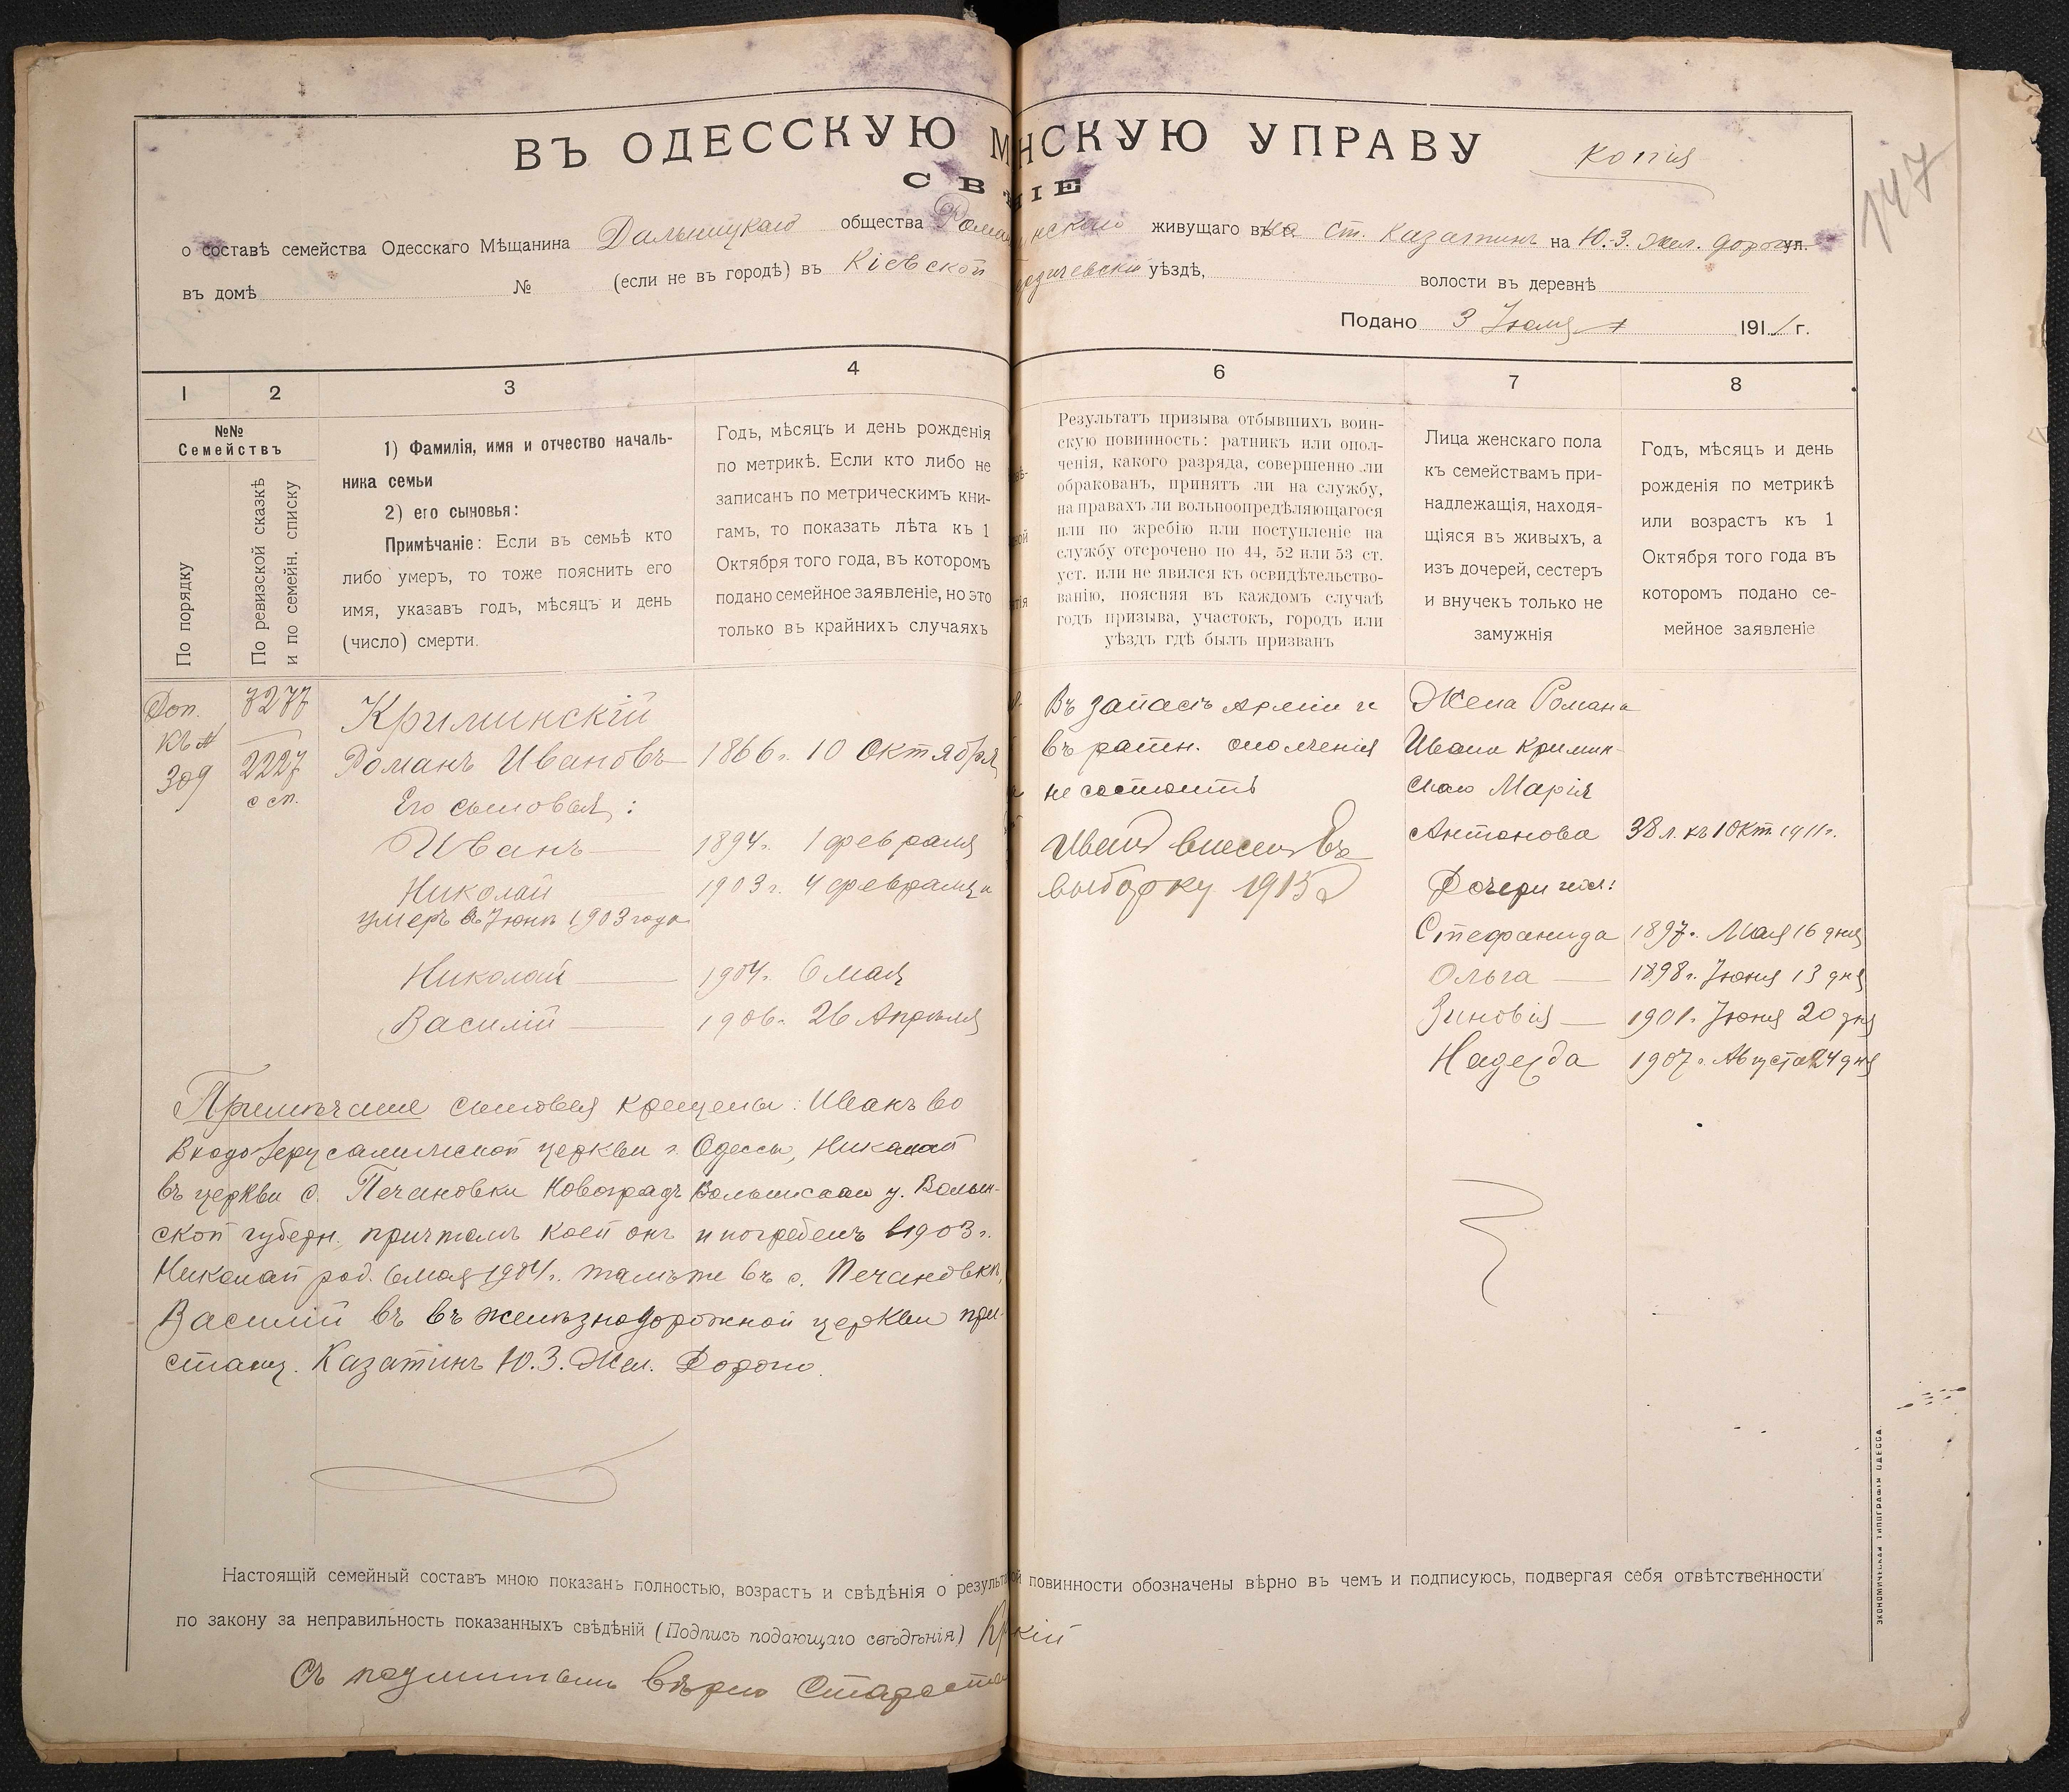 ВЪ ОДЕССКУЮ М НСКУЮ УПРАВУ
копія
147
СВ НІЕ
о составѣ семейства Одесскаго Мѣщанина Дальницкаго общества живущаго въ на ст. Казатинъ на Ю.-З. жел. дорогѣ ул.
въ домѣ № (если не въ городѣ) въ Кіевской уѣздѣ, волости въ деревнѣ
Подано 3 Іюля 1911 г.
1 2 3 4 6 7 8
№№
Семействъ
По порядку
По ревизской сказкѣ
и по семейн. списку
1) Фамилія, имя и отчество началь-
ника семьи
2) его сыновья:
Примѣчаніе: Если въ семьѣ кто
либо умеръ, то тоже пояснить его
имя, указавъ годъ, мѣсяцъ и день
(число) смерти.
Годъ, мѣсяцъ и день рожденія
по метрикѣ. Если кто либо не
записанъ по метрическимъ кни-
гамъ, то показать лѣта къ 1
Октября того года, въ которомъ
подано семейное заявленіе, но это
только въ крайнихъ случаяхъ
Результатъ призыва отбывшихъ воин-
скую повинность: ратникъ или опол-
ченія, какого разряда, совершенно ли
обракованъ, принятъ ли на службу,
на правахъ ли вольноопредѣляющагося
или по жребію или поступленіе на
службу отсрочено по 44, 52 или 53 ст.
уст. или не явился къ освидѣтельство-
ванію, поясняя въ каждомъ случаѣ
годъ призыва, участокъ, городъ или
уѣздъ гдѣ былъ призванъ
Лица женскаго пола
къ семействамъ при-
надлежащія, находя-
щіяся въ живыхъ, а
изъ дочерей, сестеръ
и внучекъ только не
замужнія
Годъ, мѣсяцъ и день
рожденія по метрикѣ
или возрастъ къ 1
Октября того года въ
которомъ подано се-
мейное заявленіе
Доп.
къ №
309
3277
2227
о сп.
Криминскій
Романъ Ивановъ 1866 г. 10 Октября
Его сыновья:
Иванъ 1894 г. 1 февраля
Николай 1903 г. 4 февраля
умеръ въ Іюнѣ 1903 года
Николай 1904 г. 6 мая
Василій 1906 г. 26 Апрѣля
Въ запасѣ арміи и
въ ратн. ополченія
не состоитъ
Иванъ внесенъ въ
выборку 1915 г
Жена Романа
Ивана Кримин-
скаго Марія
Антонова 38 л. къ 1 Окт. 1911 г.
Дочери их:
Стефанида 1897 г. Мая 16 дня
Ольга 1898 г. Іюня 13 дня
Зиновія 1901 г. Іюня 20 дня
Надежда 1907 г. Августа 24 дня
Примѣчаніе сыновья крещены: Иванъ во
Входоіерусалимской церкви г. Одессы, Николай
въ церкви с. Печановки Новоградъ Волынскаго у. Волын-
ской губерн. причтомъ коей онъ и погребенъ в 1903 г.
Николай род. 6 мая 1904 г. тамъ же въ с. Печановкѣ,
Василій въ въ желѣзнодорожной церкви при
станц. Казатинъ Ю.З. Жел. Дорого.
Настоящій семейный составъ мною показанъ полностью, возрастъ и свѣдѣнія о результа ой повинности обозначены вѣрно въ чемъ и подписуюсь, подвергая себя отвѣтственности
по закону за неправильность показанныхъ свѣдѣній (Подпись подающаго свѣдѣнія) Кр кій
Съ подлиннымъ вѣрно Староста
ЭКОНОМИЧЕСКАЯ ТИПОГРАФІЯ ОДЕССА.